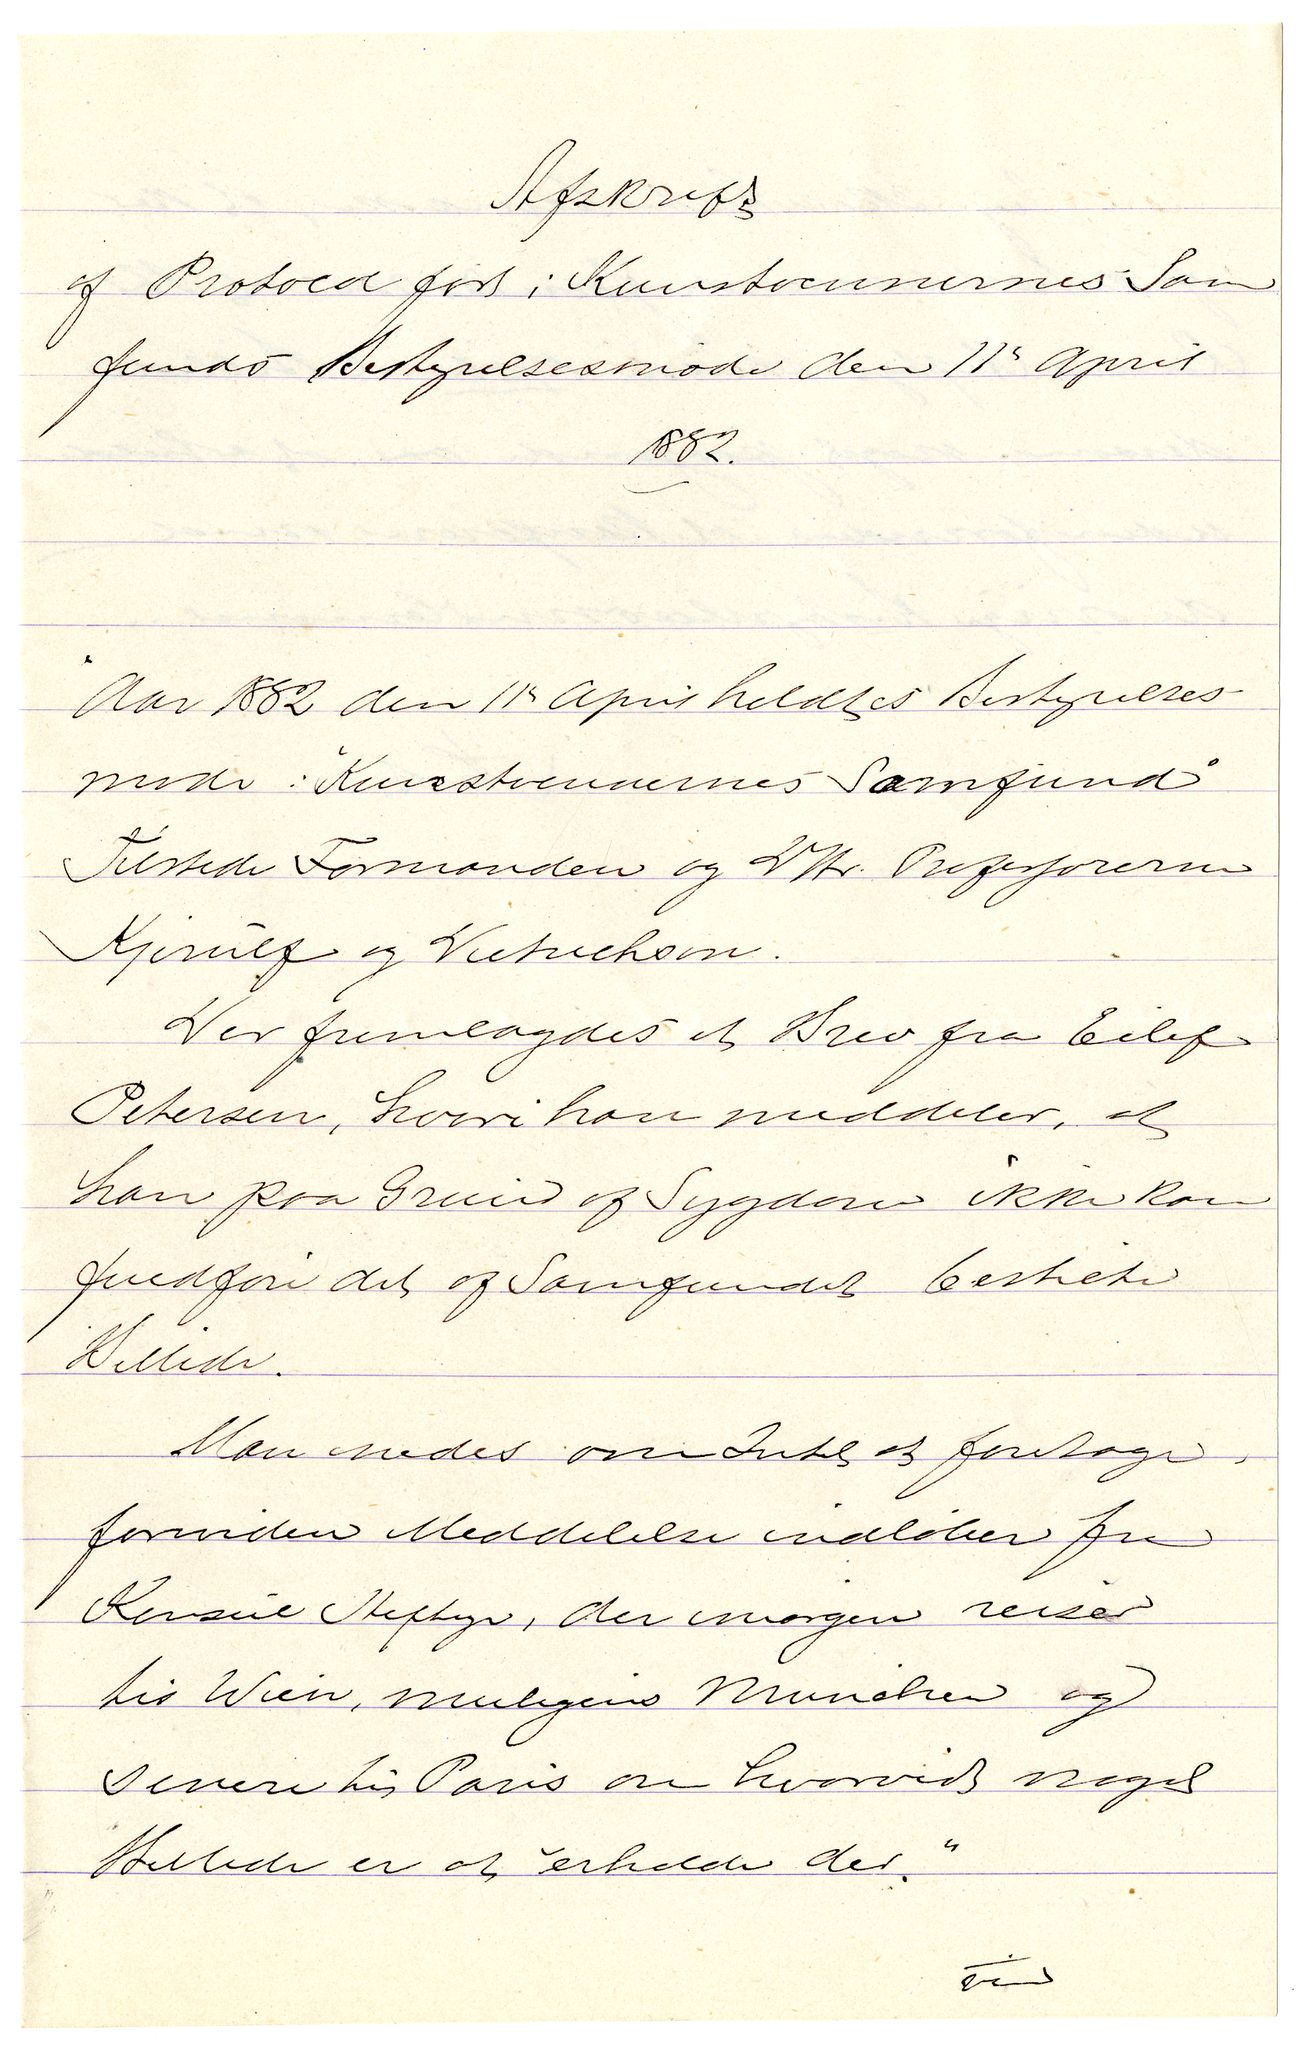 Afskrift
af Protocol ført i Kunstvennernes Sam
funds Bestyrelsesmöde den 11te April
1882.
"Aar 1882 den 11te April holdtes Bestyrelses
möde i "Kunstvennernes Samfund"
Tilstede Formanden og DHr. Professorerne
Kjerulf og Dietrichson.
Der fremlagdes et Brev fra Eilif
Petersen, hvori han meddeler, at
han paa Grund af Sygdom ikke kan
fuldføre det af Samfundet bestilte
Billede.
Man enedes om Intet at foretage,
forinden Meddelelse indløber fra
Konsul Heftye, der imorgen reiser
til Wien, muligens München og
senere til Paris om hvorvidt noget
Billede er at erholde der."